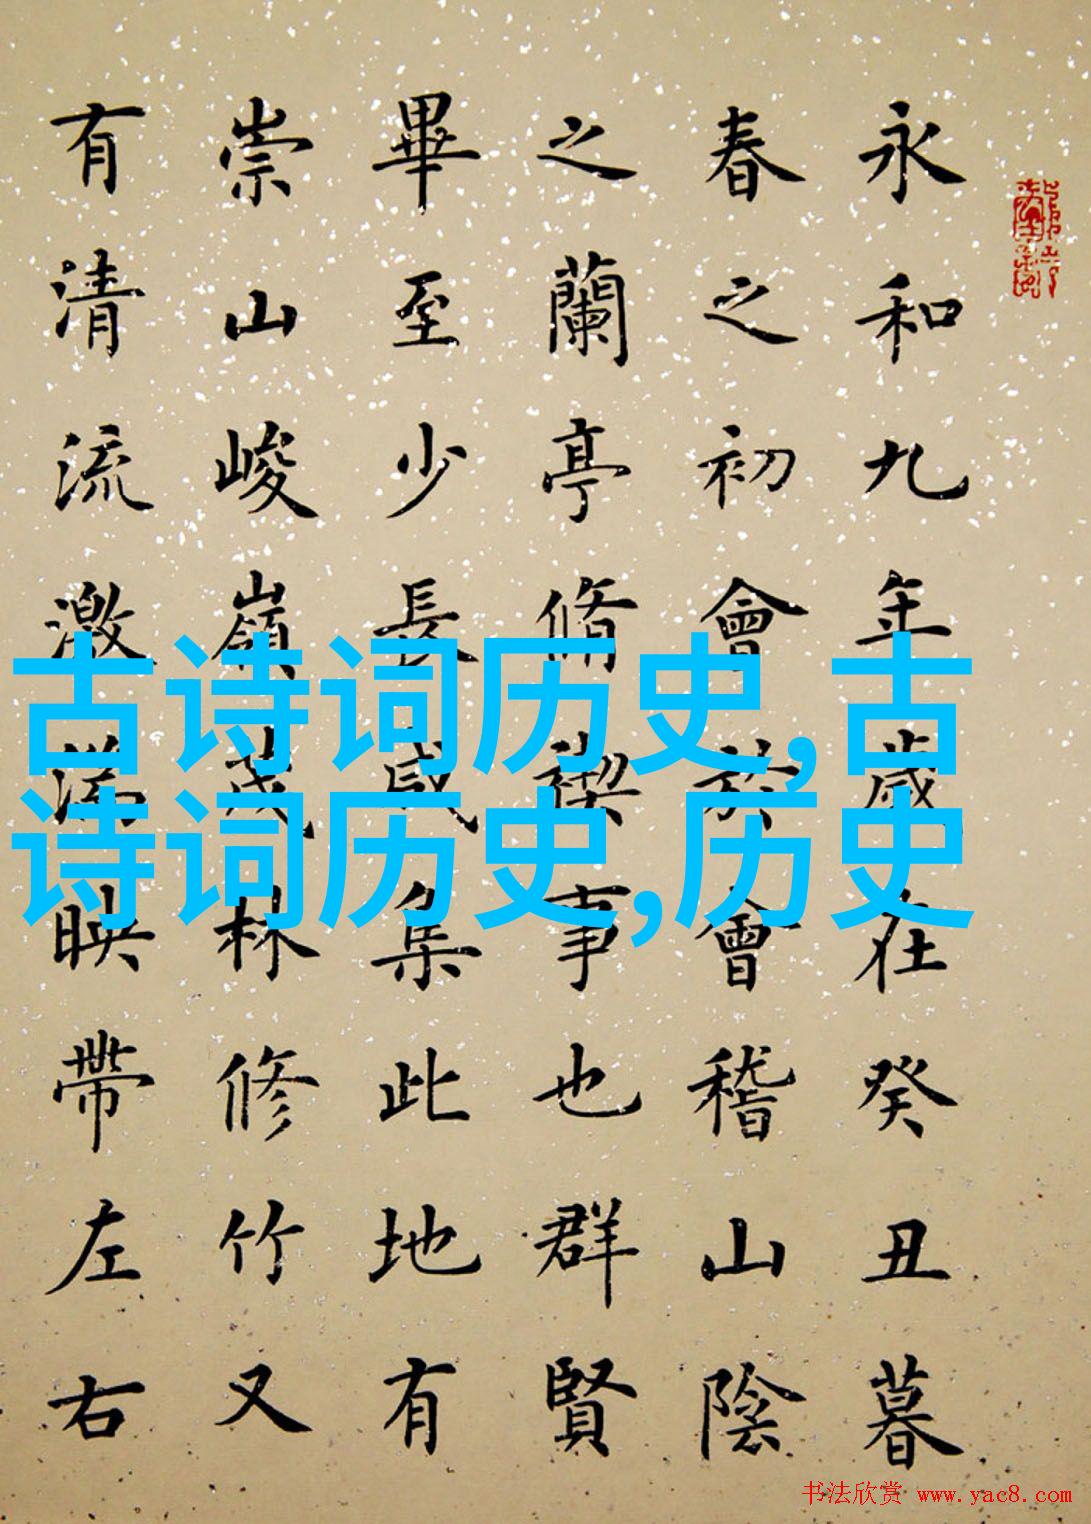 永和九年歲在癸丑暮
春之初會於會稽山陰
之蘭亭脩禊事也群賢
畢至少長咸集此地有
崇山峻嶺茂林修竹又
有清流激湍映帶左右
古诗词历史,古
诗词历史,历史
书法欣赏 www.yac8.com